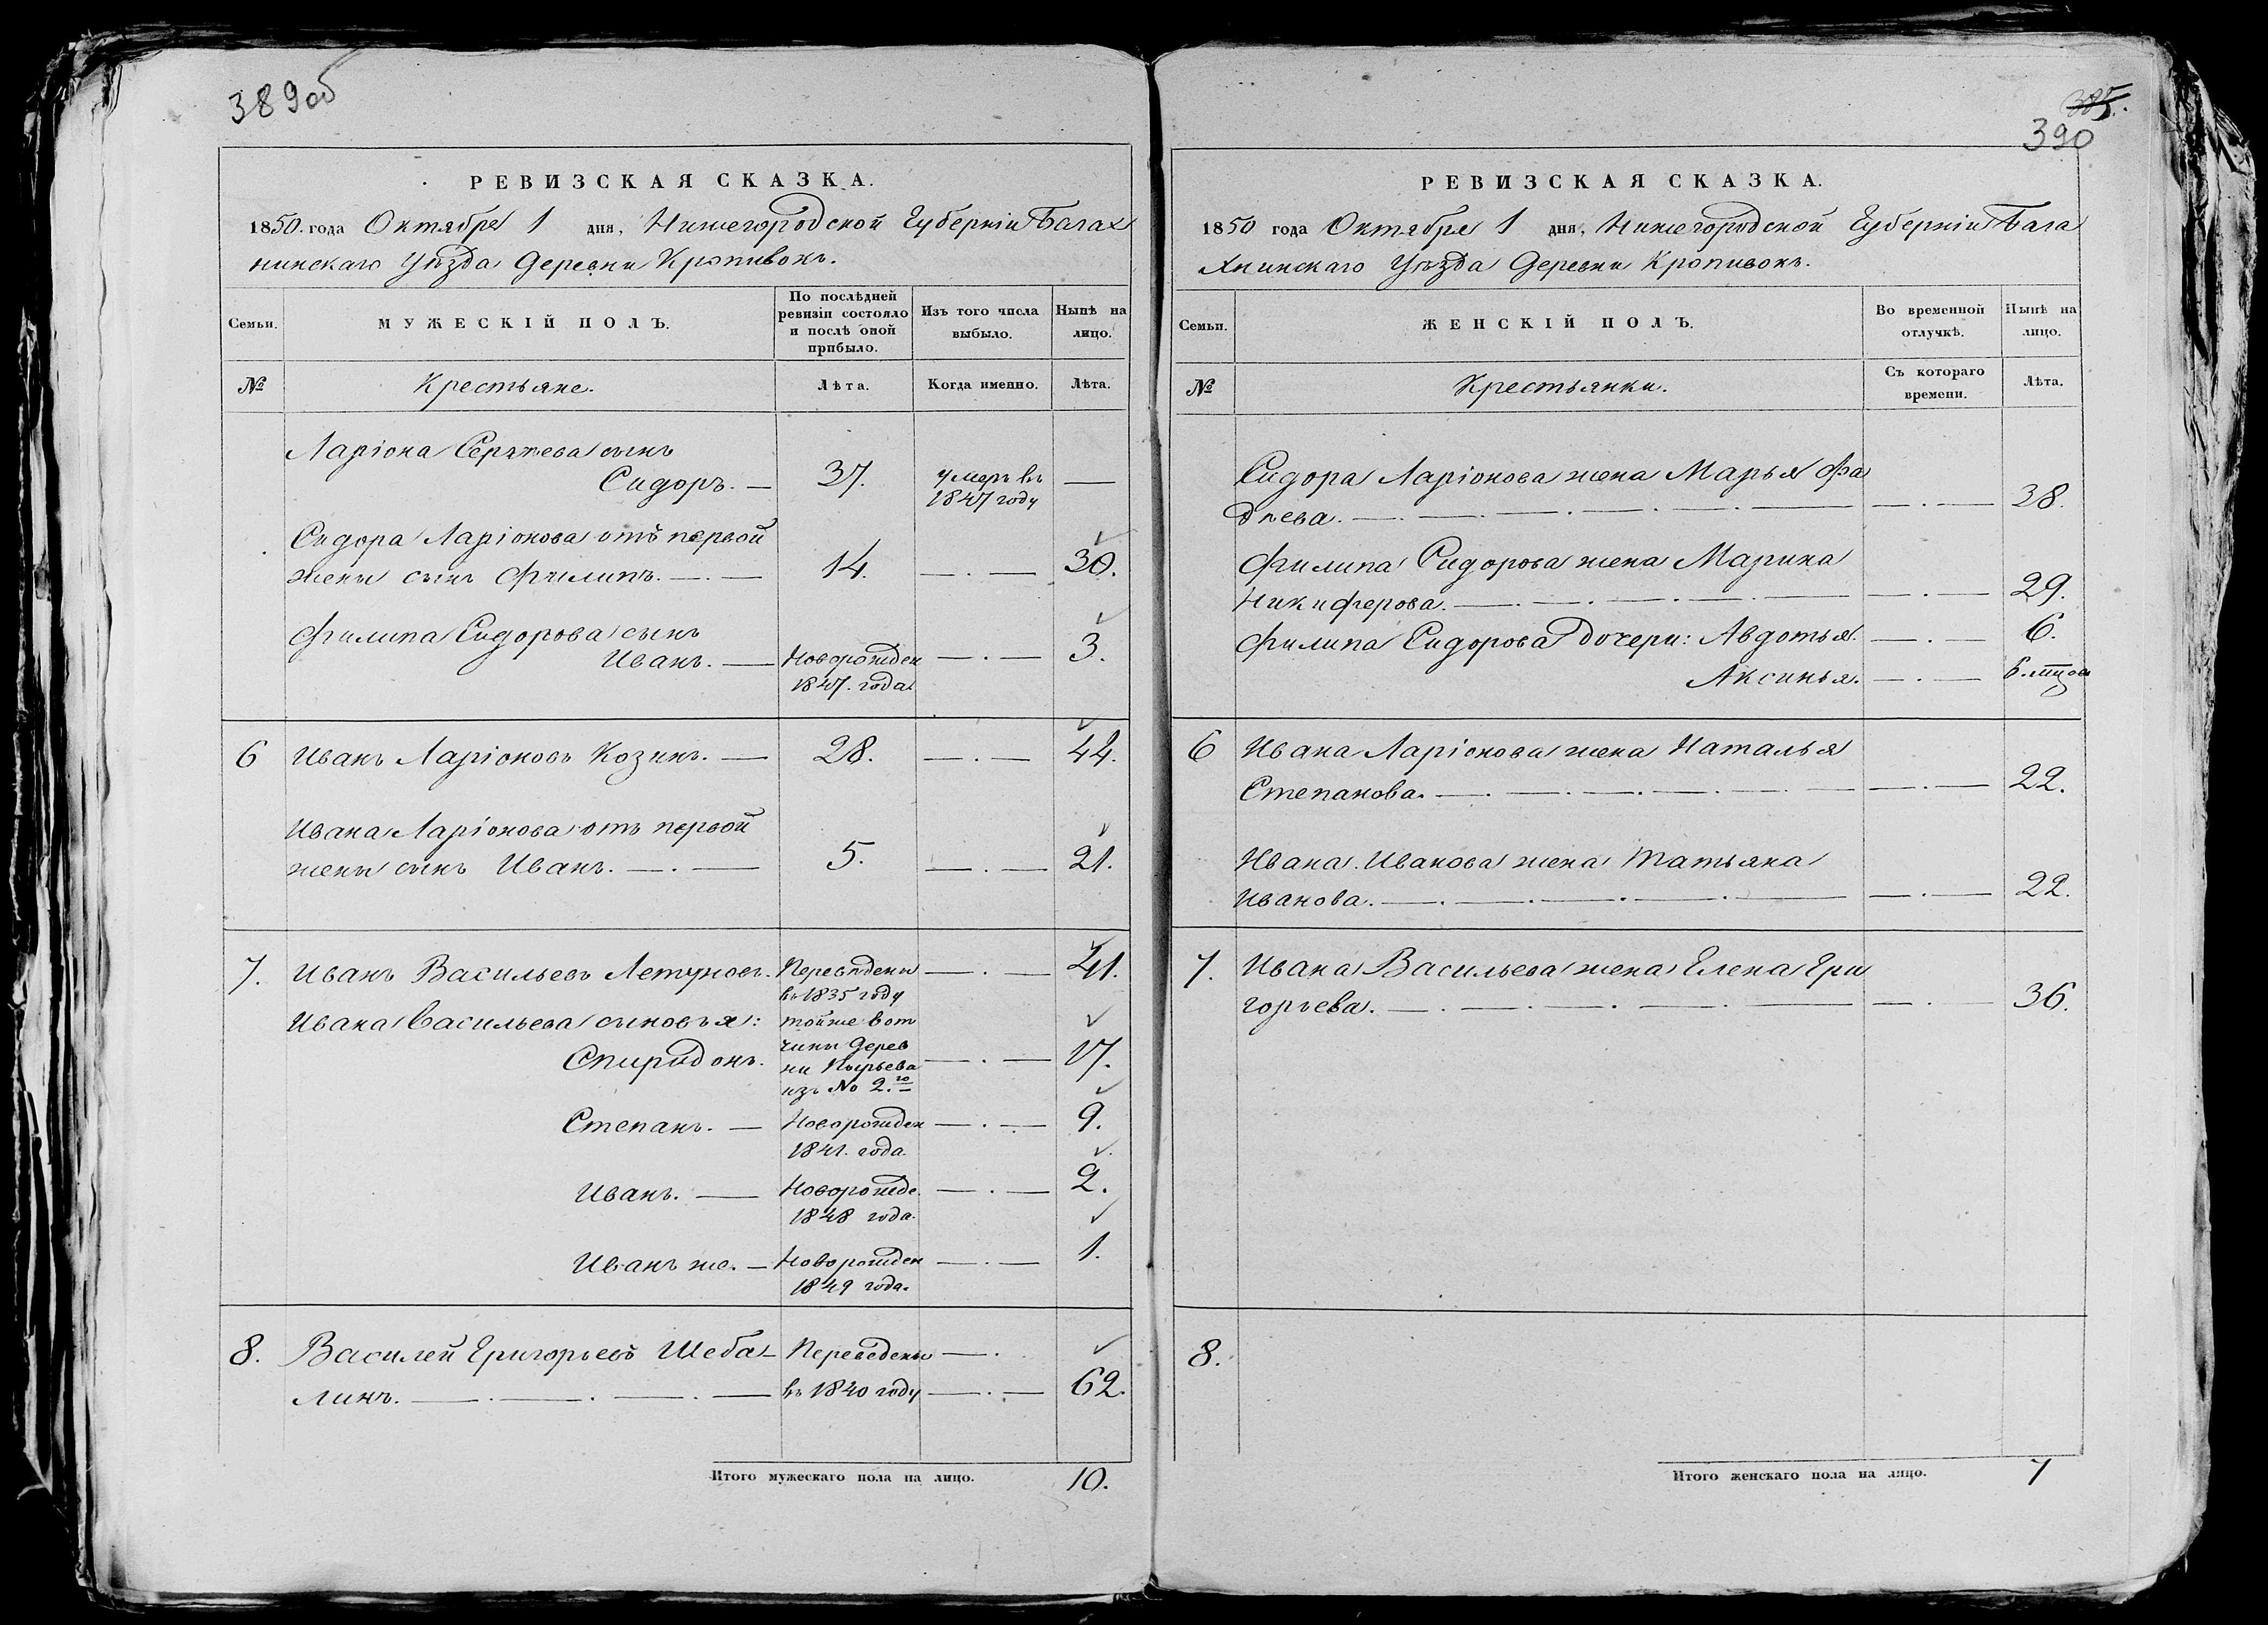 389об
РЕВИЗСКАЯ СКАЗКА.
1850. года Октября 1 дня, Нижегородской Губерніи Балах
нинскаго Уѣзда Деревни Кропивокъ.
Семьи. МУЖЕСКІЙ ПОЛЪ. По послѣдней ревизіи состояло и послѣ оной прибыло. Изъ того числа выбыло. Нынѣ на лицо.
№ Крестьяне. Лѣта. Когда именно. Лѣта.
Ларіона Сергѣева сынъ
Сидоръ. — 37. умеръ въ —
1847 году
Сидора Ларіонова отъ первой
жены сынъ Филипъ. — . — 14. — . — 30.
Филипа Сидорова сынъ
Иванъ. — Новорожден — . — 3.
1847. года
6 Иванъ Ларіоновъ Козинъ. — 28. — . — 44.
Ивана Ларіонова отъ первой
жены сынъ Иванъ. — . — 5. — . — 21.
7. Иванъ Васильевъ Летуновъ. Переведены — . — 41.
въ 1835 году
Ивана Васильева сыновья: тойже вот
чины Дерев
Спиридонъ. ни Пырьева — . — 17.
изъ № 2.го
Степанъ. — Новорожден — . — 9.
1841. года.
Иванъ. — Новорожде. — . — 2.
1848 года.
Иванъ же. — Новорожден — . — 1.
1849 года.
8. Василей Григорьевъ Шеба- Переведены — .
линъ. — . — . — . — въ 1840 году — . — 62.
Итого мужескаго пола на лицо. 10.
385.
390
РЕВИЗСКАЯ СКАЗКА.
1850 года Октября 1 дня, Нижегородской Губерніи Бала
хнинскаго Уѣзда Деревни Кропивокъ.
Семьи. ЖЕНСКІЙ ПОЛЪ. Во временной отлучкѣ. Нынѣ на лицо.
№ Крестьянки. Съ котораго времени. Лѣта.
Сидора Ларіонова жена Марья Фа
дѣева. — . — . — . — . — . — — . — 38.
Филипа Сидорова жена Марина
Никиферова. — . — . — . — . — — . — 29.
Филипа Сидорова дочери: Авдотья. — . — 6.
Аксинья. — . — 6. мцов
6 Ивана Ларіонова жена Наталья
Степанова. — . — . — . — . — — . — 22.
Ивана Иванова жена Татьяна
Иванова. — . — . — . — . — — . — 22.
7. Ивана Васильева жена Елена Гри
горьева. — . — . — . — . — — . — 36.
8.
Итого женскаго пола на лицо. 7